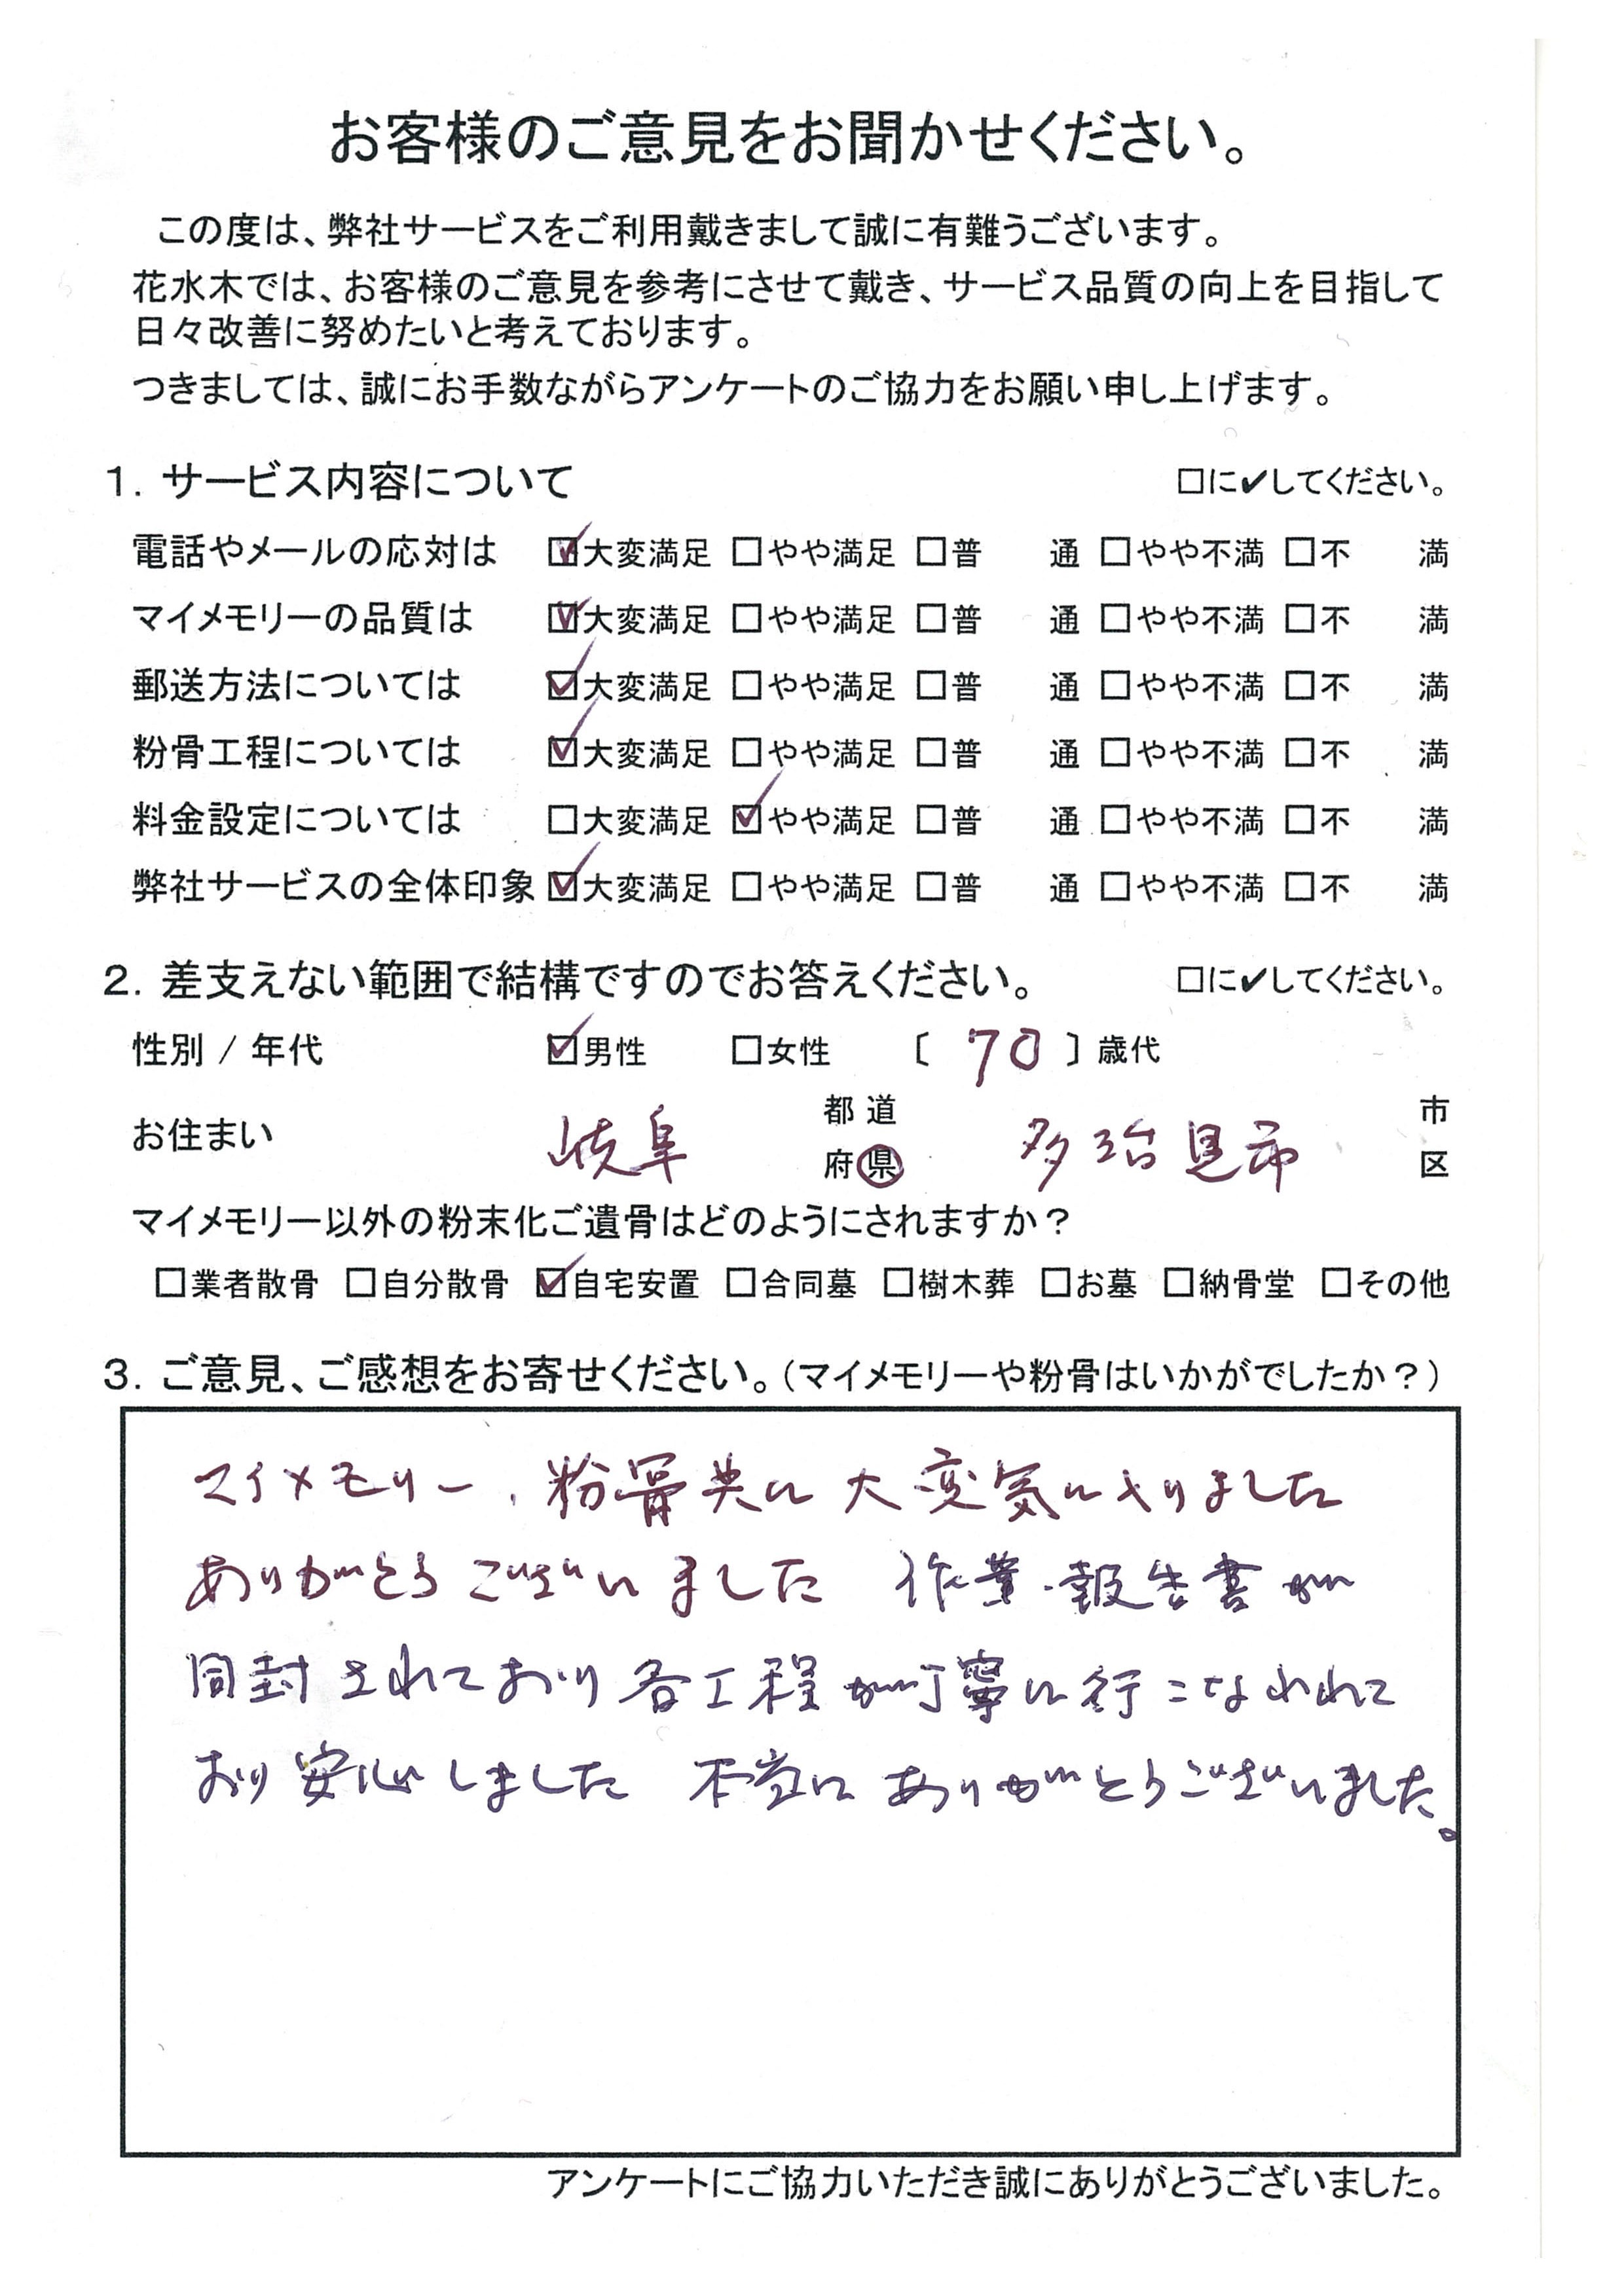 お客様のご意見をお聞かせください。
この度は、弊社サービスをご利用戴きまして誠に有難うございます。
花水木では、お客様のご意見を参考にさせて戴き、サービス品質の向上を目指して
日々改善に努めたいと考えております。
つきましては、誠にお手数ながらアンケートのご協力をお願い申し上げます。
1. サービス内容について □に✔してください。
電話やメールの応対は ☑大変満足 □やや満足 □普 通 □やや不満 □不 満
マイメモリーの品質は ☑大変満足 □やや満足 □普 通 □やや不満 □不 満
郵送方法については ☑大変満足 □やや満足 □普 通 □やや不満 □不 満
粉骨工程については ☑大変満足 □やや満足 □普 通 □やや不満 □不 満
料金設定については □大変満足 ☑やや満足 □普 通 □やや不満 □不 満
弊社サービスの全体印象 ☑大変満足 □やや満足 □普 通 □やや不満 □不 満
2. 差支えない範囲で結構ですのでお答えください。 □に✔してください。
性別 / 年代 ☑男性 □女性 〔 70 〕歳代
お住まい 岐阜 都 道 府 県 多治見市 市 区
マイメモリー以外の粉末化ご遺骨はどのようにされますか？
□業者散骨 □自分散骨 ☑自宅安置 □合同墓 □樹木葬 □お墓 □納骨堂 □その他
3. ご意見、ご感想をお寄せください。（マイメモリーや粉骨はいかがでしたか？）
マイメモリー、粉骨共に大変気に入りました
ありがとうございました 作業・報告書が
同封されており各工程が丁寧に行こなわれて
おり安心しました 本当にありがとうございました。
アンケートにご協力いただき誠にありがとうございました。